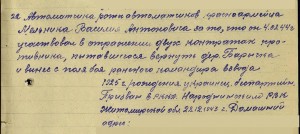 22. Автоматчика, роты автоматчиков красноармейца
Мельника Василия Антоновича за то, что он 4.02.44 г.
участвовал в отражении двух контратак про-
тивника, пытавшегося вернуть дер.
и вынес с поля боя раненого командира взвода.
1925 г. рождения, украинец, беспартийн.
Призван в РККА Народичский РВК
Житомирской обл. 22.12.1943 г. Домашний
адрес: